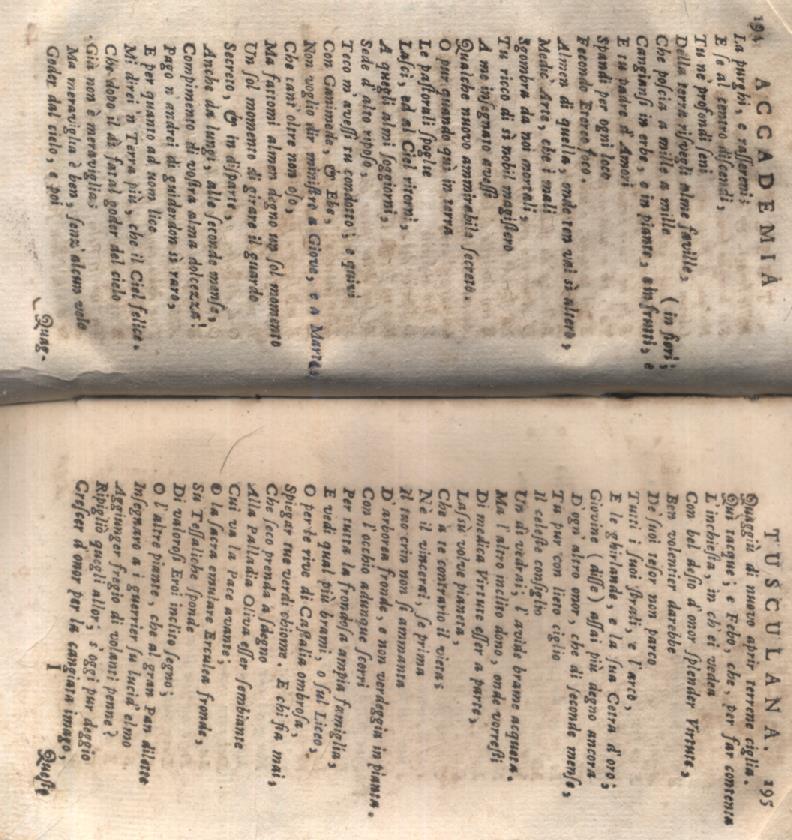 194 ACCADEMIA
La purghi, e rassermi;
E se al centro discendi,
Tu ne' profondi seni
Della terra risvegli alme faville,
Che poscia a mille a mille ( in fiori;
Cangiansi in erbe, e in piante, e in frutti, e
E tu padre d' Amori
Spandi per ogni loco
Fecondo Etereo foco.
Almen di quella, onde ten vai sì altero,
Medic' Arte, che i mali
Sgombra da noi mortali,
Tu ricco di sì nobil magistero
A me insegnato avessi
Qualche nuovo ammirabile secreto.
O pur quando quì in terra
Le pastorali spoglie
Lasci, ed al Ciel ritorni,
A quegli almi soggiorni,
Sede d' alto riposo,
Teco m' avessi tu condotto; e quivi
Con Ganimede, & Ebe,
Non voglio dir ministro a Giove, e a Marte,
Che tant' oltre non oso,
Ma fattomi almen degno un sol momento
Un sol momento di girare il guardo
Secreto, & in disparte,
Anche da lungi, alle seconde mense,
Compimento di vostra alma dolcezza!
Pago n' andrei di guiderdon sì raro,
E per quanto ad uom lice
Mi direi 'n Terra più, che il Ciel felice.
Che dopo il dì fatal goder del cielo
Già non è meraviglia;
Ma meraviglia è ben, senz' alcun velo
Goder dal cielo, e poi
Quag-
TUSCULANA. 195
Quaggiù di nuovo aprir terrene ciglia.
Quì tacque; e Febo, che, per far contenta
L' inchiesta, in ch' ei vedea
Con bel desio d' onor splender Virtute,
Ben volentier darebbe
De' suoi tesor non parco
Tutti i suoi strali, e l' arco,
E le ghirlande, e la sua Cetra d' oro;
Giovine ( disse ) assai più degno ancora
D' ogn' altro onor, che di seconde mense,
Tu pur con lieto ciglio
Il celeste consiglio
Un dì vedrai; l' avide brame acqueta.
Ma l' altro inclito dono, onde vorresti
Di medica Virtute esser a parte,
Lassù volve pianeta,
Che a te contrario il vieta:
Nè il vincerai, se prima
Il tuo crin non s' ammanta
D' arborea fronde, e non verdeggia in pianta.
Con l' occhio adunque scorri
Per tutta la frondosa ampia famiglia,
E vedi qual più brami, o sul Liceo,
O per le rive di Castalia ombrosa,
Spiegar tue verdi chiome. E chi fia mai,
Che seco prenda a sdegno
Alla Palladia Oliva esser sembiante
Cui va la Pace avante;
O la sacra emulare Erculea fronde,
Su Tessaliche sponde
Di valorosi Eroi inclito segno;
O l' altre piante, che al gran Pan dilette
Insegnaro a i guerrier su lucid' elmo
Aggiunger fregio di volanti penne?
Ripigliò quegli allor; s' oggi pur deggio
Crescer d' onor per la cangiata imago,
I Queste